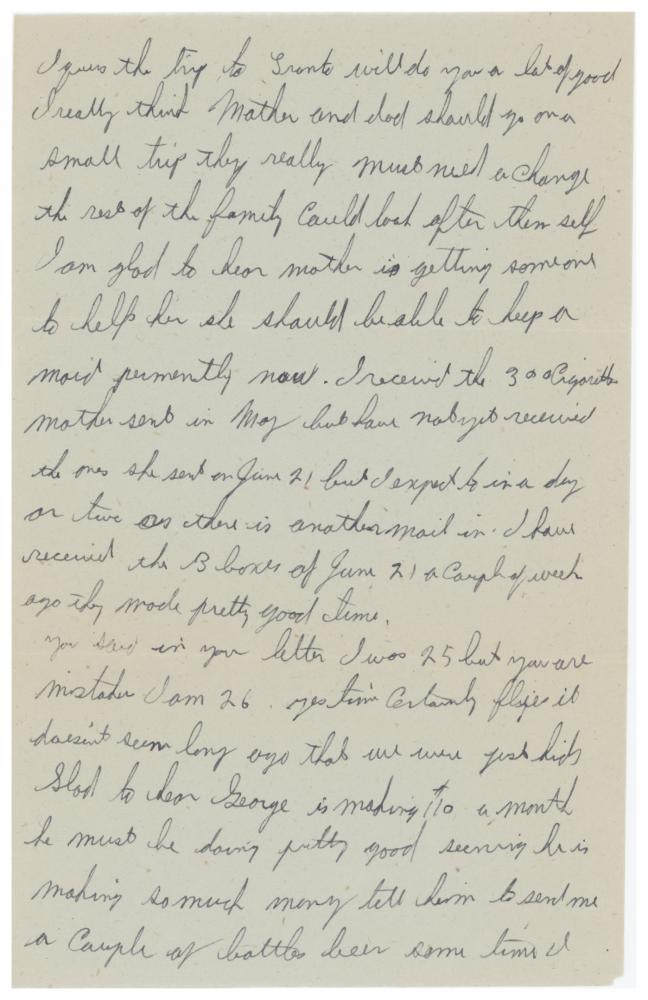 I guess the trip to Tronto will do you a lot of good
I really think Mother and dad should go on a
small trip they really must need a change
the rest of the family could look after them self
I am glad to hear mother is getting someone
to help her she should be able to keep a
maid permently now. I received the 300 Cigarettes
mother sent in May but have not yet received
the ones she sent on June 21 but I expect to in a day
or two as there is another mail in. I have
received the 3 boxes of June 21 a couple of week
ago they made pretty good time.
you said in your letter I was 25 but you are
mistaken I am 26. yes time certainly flies it
doesn't seem long ago that we were just kids
Glad to hear George is making $110 a month
he must be doing pretty good seeing he is
making so much money tell him to send me
a couple of bottles beer some time I